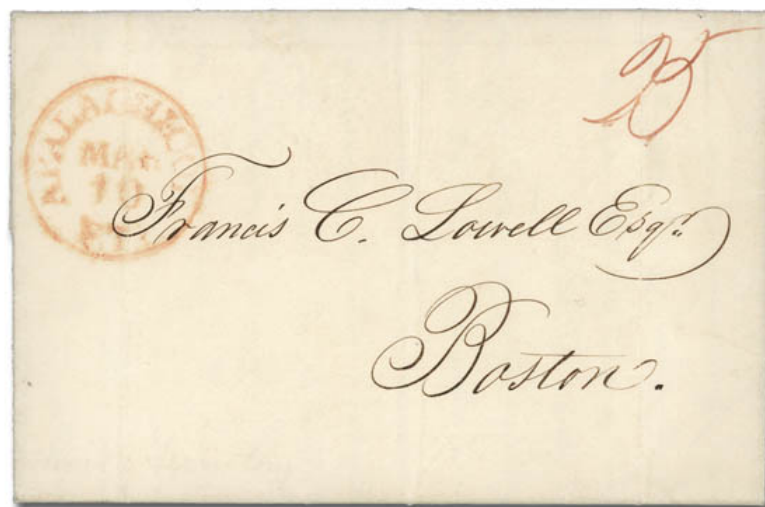 25
APALACHICOLA
MAR
10
Fra​ncis C. Lowell Esqr.
Boston.